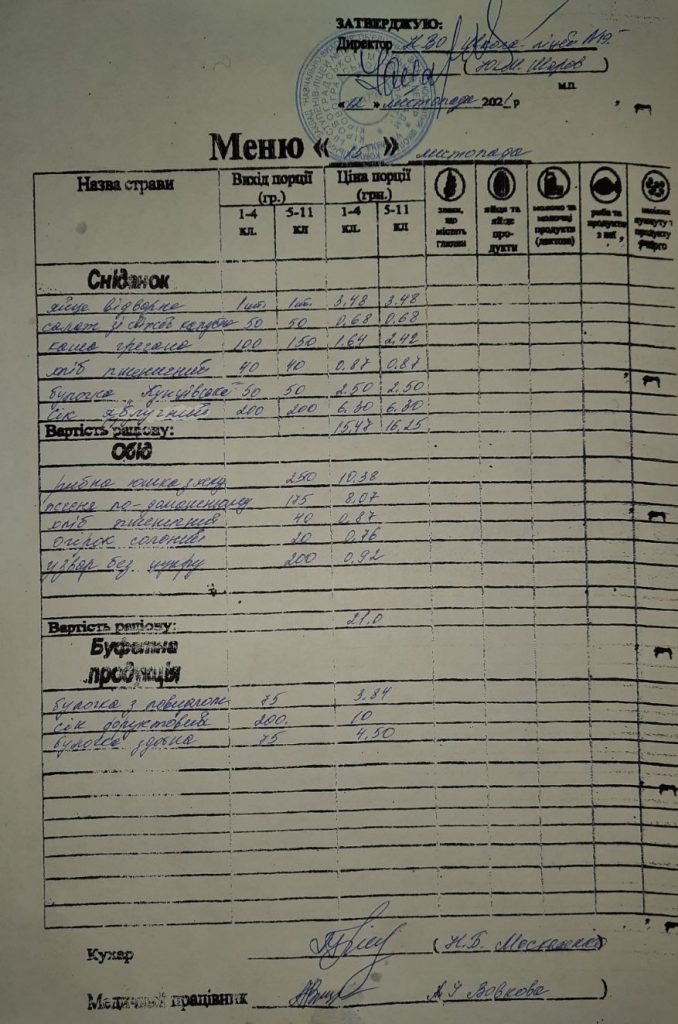 ЗАТВЕРДЖУЮ:
Директор НВО
( Ю.М. Жаров )
м.п.
«12» листопада 2021 р
Меню « 15 » листопада
Назва страви Вихід порції (гр.) Ціна порції (грн.) злаки, що містять глютен яйця та яйце продукти молоко та молочні продукти (лактоза) риба та продукти з неї насіння кунжуту і продукту
1-4 кл. 5-11 кл 1-4 кл. 5-11 кл
Сніданок
яйце відварне 1шт. 1шт. 3,48 3,48
салат зі свіжої капусти 50 50 0,68 0,68
каша гречана 100 150 1,64 2,42
хліб пшеничний 40 40 0,87 0,87
булочка 50 50 2.50 2.50
сік яблучний 200 200 6.30 6.30
Вартість раціону: 15,47 16,25
Обід
рибна юшка 250 10,38
печеня по-домашньому 175 8,07
хліб пшеничний 40 0,87
огірок солоний 20 0,76
узвар без цукру 200 0,92
Вартість раціону: 21.0
Буфетна продукція
булочка з повидлом 75 3.84
сік 200. 10
булочка здобна 75 4.50
Кухар ( Н.Б. Москаленко
Медичний працівник Вовкова )